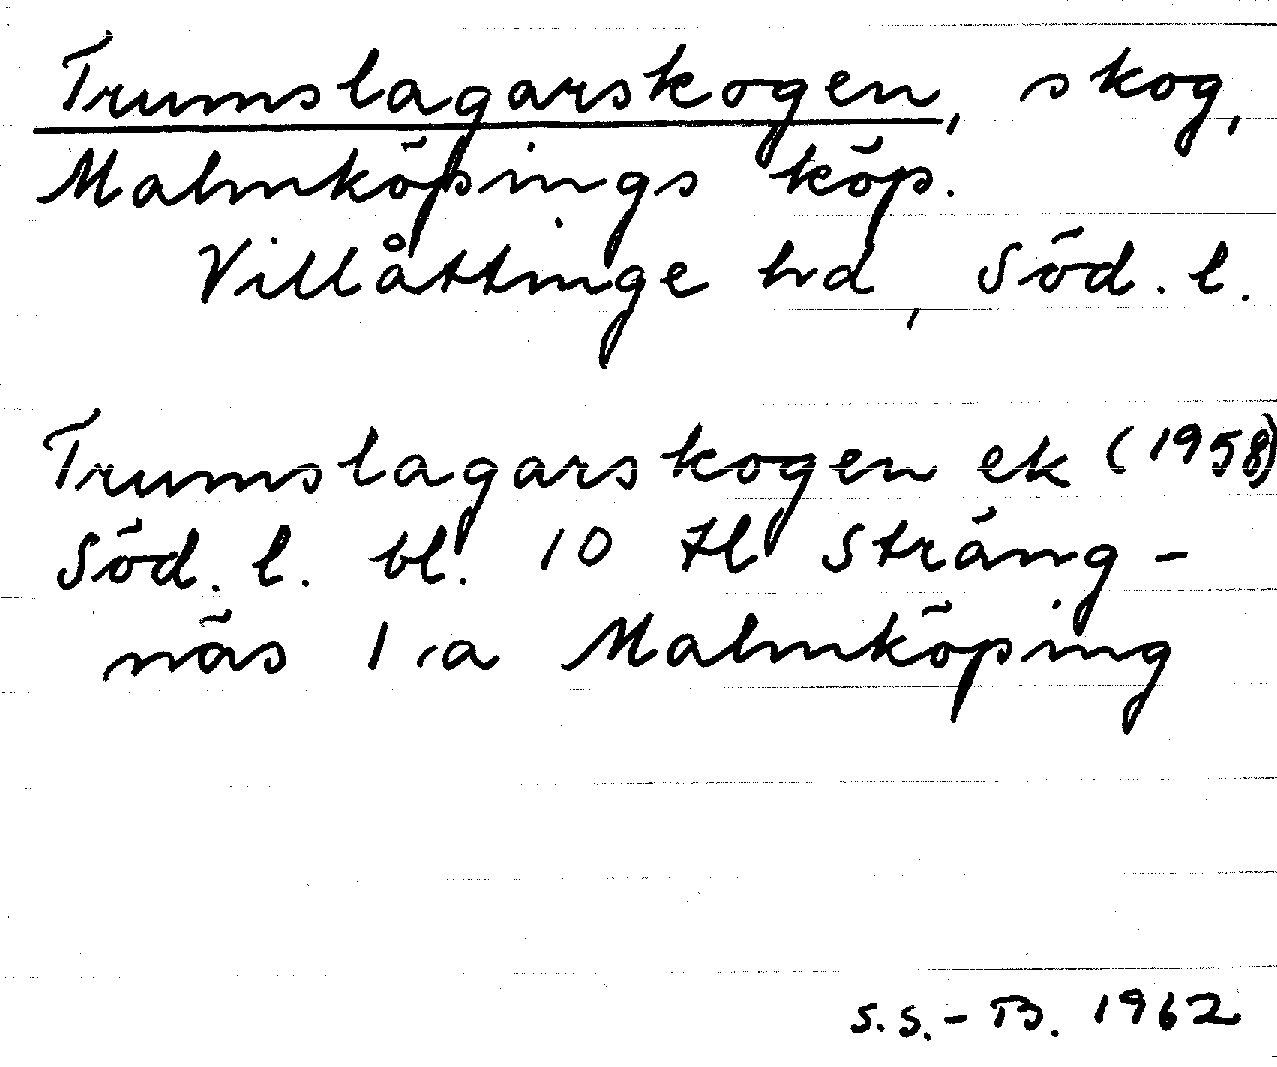 Trumslagarskogen, skog,
Malmköpings köp.
Villåttinge hd, Söd. l.
Trumslagarskogen ek (1958)
Söd. l. bl. 10 tl Sträng-
näs 1.a Malmköping
S.S.-B. 1962